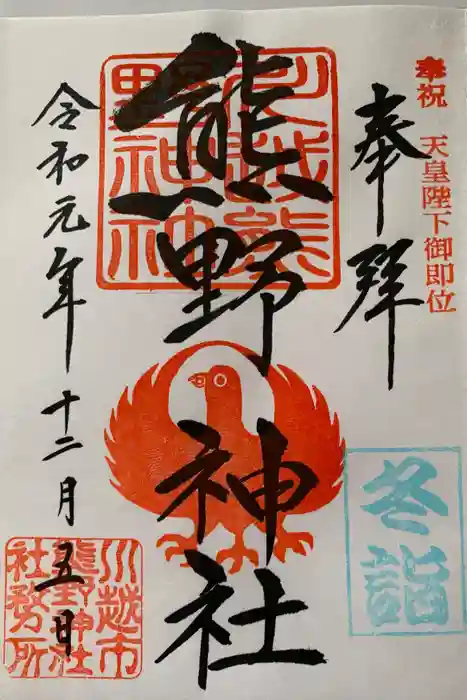 奉祝 天皇陛下御即位
奉拝
冬詣
熊野神社
川越熊野神社
令和元年十二月五日
川越市
熊野神社
社務所